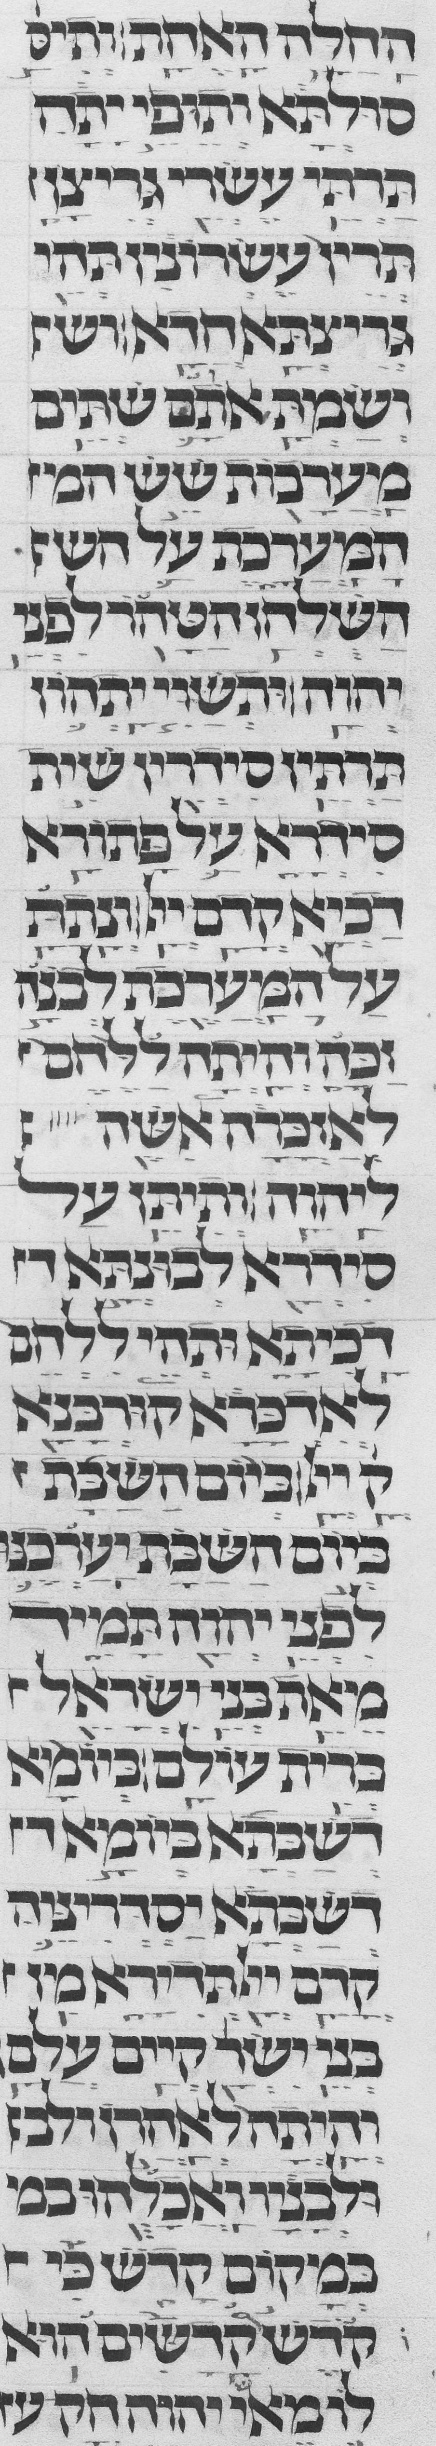 החלה האחת ותיס
סולתא ותופי יתה
תרתי עשרי גריצן
תרין עשרונין תהי
גריצתא חדא ושׂ
ושמת אתם שתים
מיערכות שש המי
המערכת על הש
השלחן הטהר לפני
יהוה ותשוי יתהון
תרתין סידרין שית
סידרא על פתורא
דכיא קדם ייי ונתת
על המערכת לבנה
זכה והיתה ללחם
לאזכרה אשה
ליהוה ותיתן על
סידרא לבונתא ד
דכיתא ותהי ללחם
לאדכרא קורבנא
ק ייי ביום השבת
ביום השבת יערכנו
לפני יהוה תמיד
מיאת בני ישראל
ברית עולם ביומא
דשבתא ביומא ד
דשבתא יסדרינוה
קדם ייי תדירא מין
בני ישר קיים עלם
והיתה לאהרן ולב
ולבניו ואכלהו במ
במקום קדש כי
קדש קדשים הוא
לו מאי יהוה חק ע